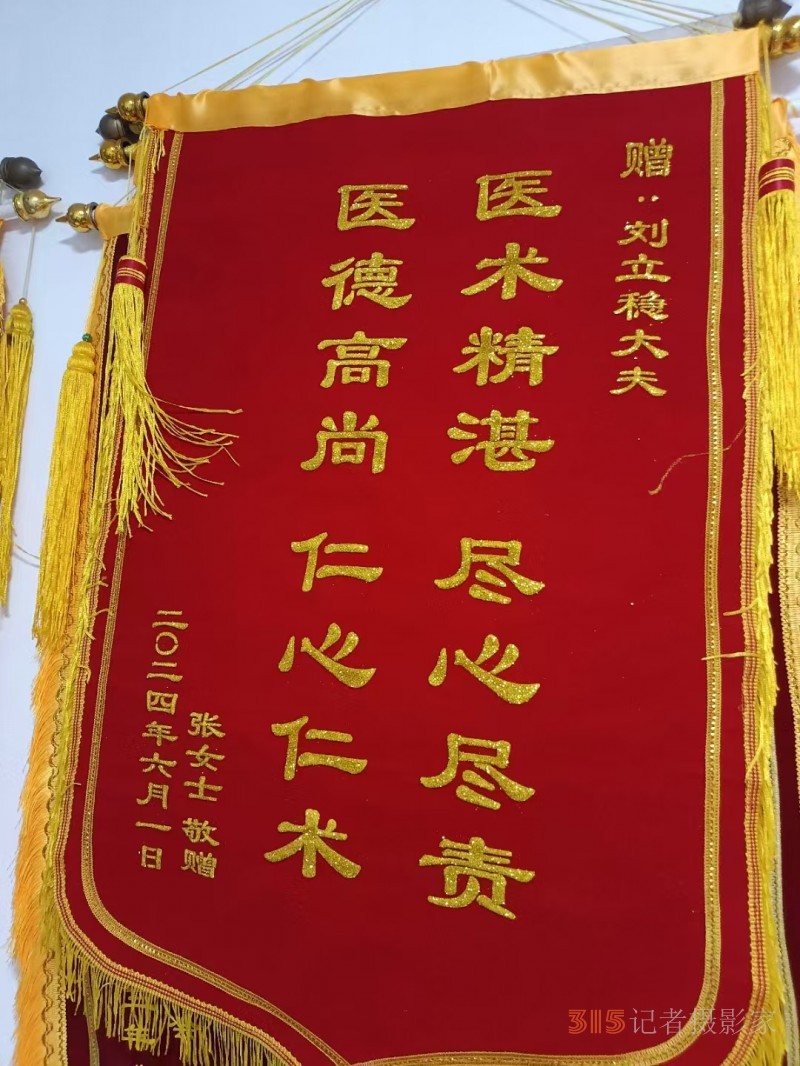 赠：刘立稳大夫
医术精湛 尽心尽责
医德高尚 仁心仁术
张女士 敬赠
二〇二四年六月一日
315记者摄影家